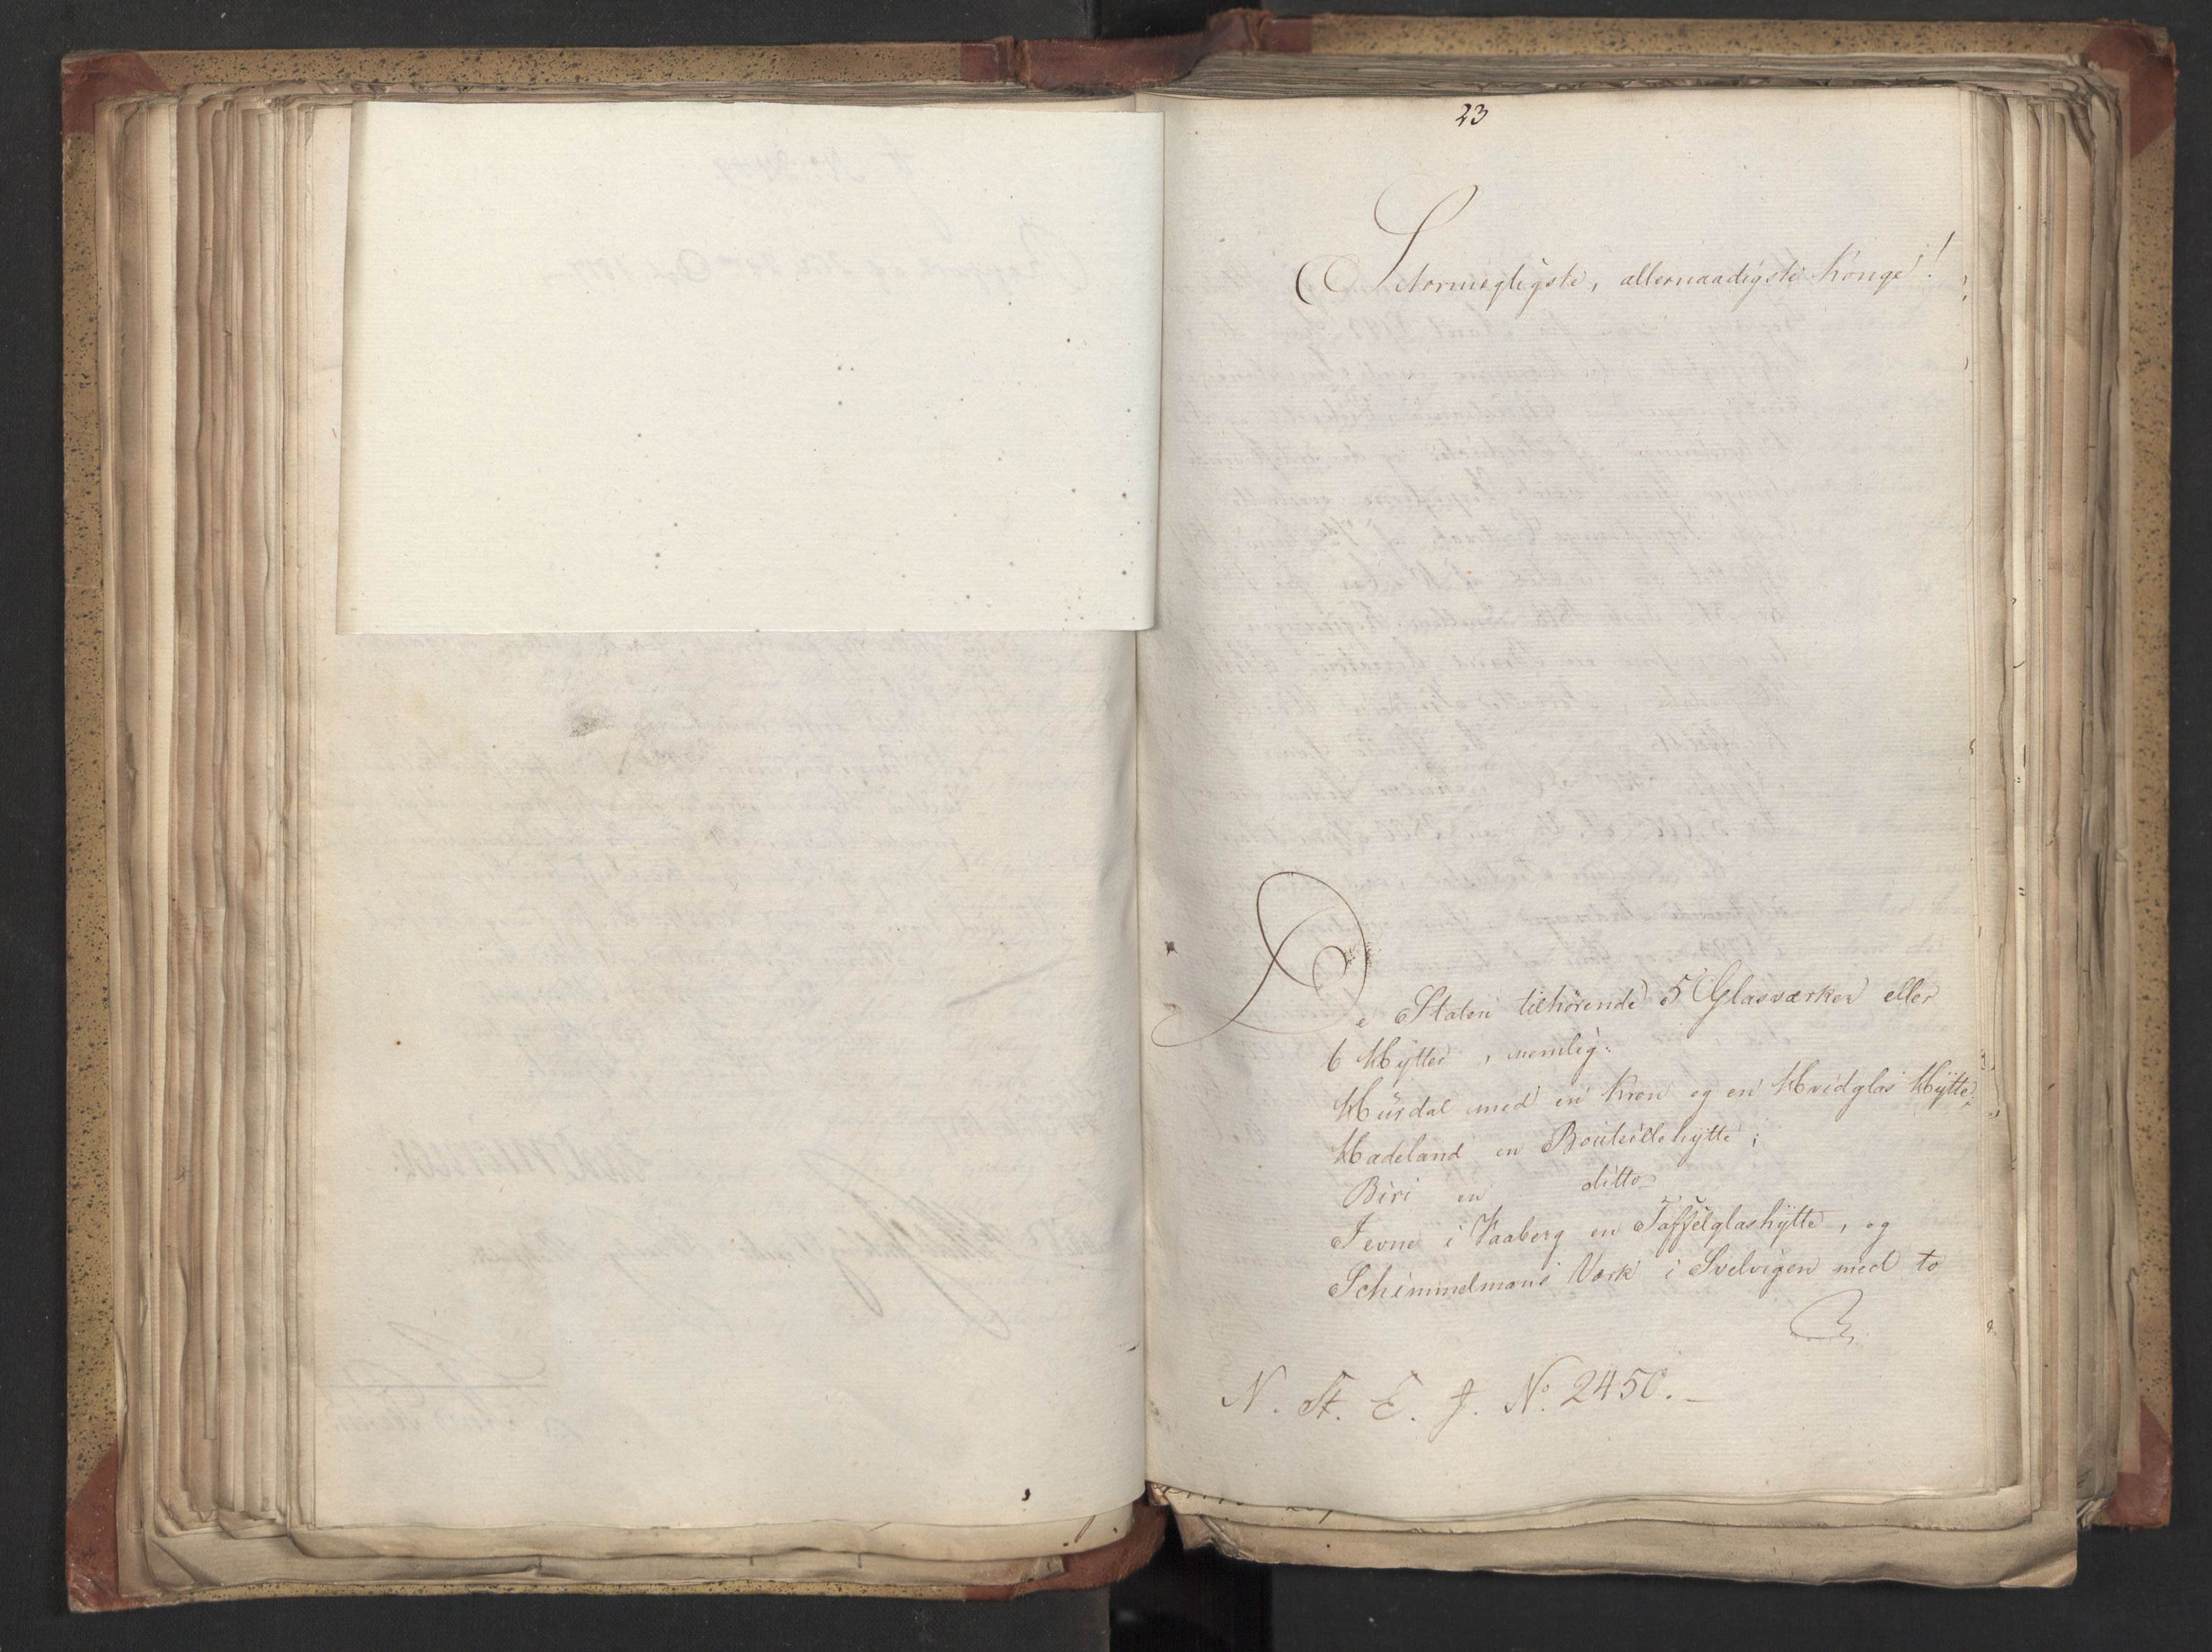 23
Stormægtigste, allernaadigste Konge!
De Staten tilhörende 5 Glasværker eller
6 Hytter, nemlig:
Hurdal med en Kron og en Hvidglas Hytte;
Hadeland en Bouteillehytte;
Biri en ditto
Jevne i Faaberg en Taffelglashytte, og
Schimmelmans Værk i Svelvigen med to
N. St. E. J. No. 2450.